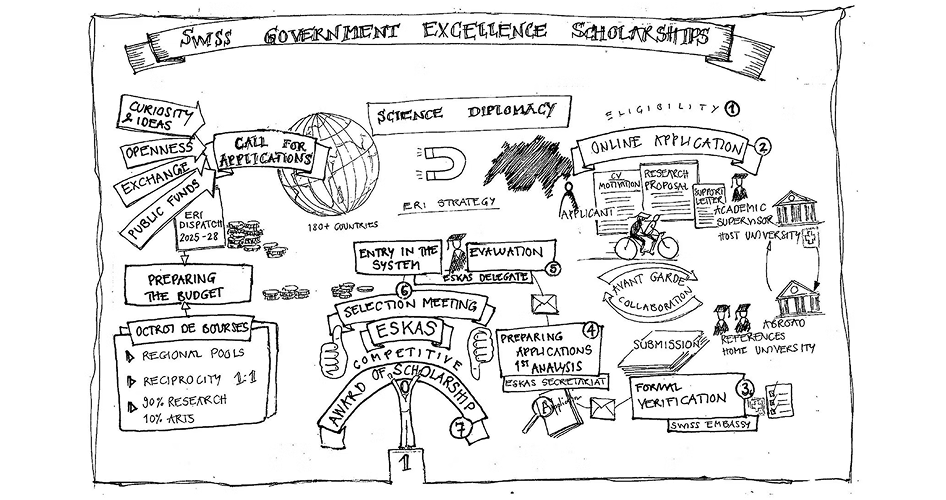 SWISS GOVERNMENT EXCELLENCE SCHOLARSHIPS
CURIOSITY
& IDEAS
OPENNESS
EXCHANGE
PUBLIC FUNDS
CALL FOR
APPLICATIONS
ERI
DISPATCH
2025-28
180+ COUNTRIES
SCIENCE DIPLOMACY
ERI STRATEGY
ELIGIBILITY 1
ONLINE APPLICATION 2
APPLICANT
CV
MOTIVATION
RESEARCH
PROPOSAL
SUPPORT
LETTER
ACADEMIC
SUPERVISOR
HOST UNIVERSITY
AVANT GARDE
COLLABORATION
ABROAD
REFERENCES
HOME UNIVERSITY
SUBMISSION
FORMAL
VERIFICATION
3
SWISS EMBASSY
4
PREPARING
APPLICATIONS
1ST ANALYSIS
ESKAS SECRETARIAT
Application
EVALUATION
5
ESKAS DELEGATE
ENTRY IN THE
SYSTEM
6
SELECTION MEETING
ESKAS
COMPETITIVE
AWARD OF SCHOLARSHIP
7
1
PREPARING
THE BUDGET
OCTROI DE BOURSES
REGIONAL POOLS
RECIPROCITY 1:1
90% RESEARCH
10% ARTS